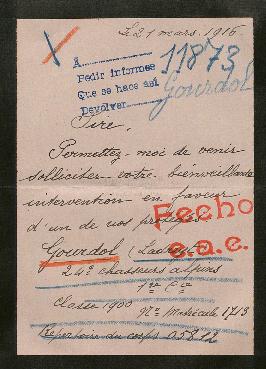 Le 21 mars. 1916
11873
Gourdol
A
Pedir informes
Que se hace así
Devolver
Sire,
Permettez-moi de venir
solliciter votre bienveillante
intervention en faveur
d'un de nos protégés.
Fecho
e.a.e.
Gourdol
24e chasseurs alpins
1re Cie
Classe 1900
No Matricule 1713
Répertoire du corps 05812